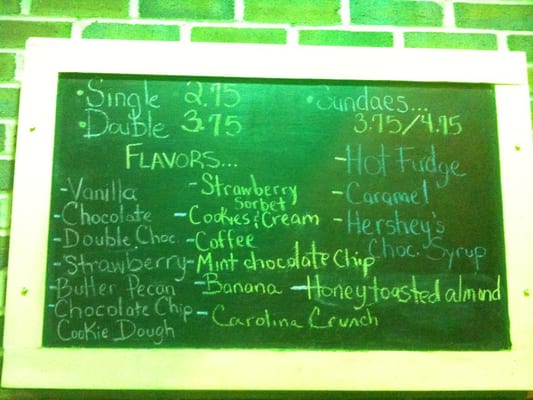 • Single 2.75
• Double 3.75
• Sundaes...
3.75/4.75
FLAVORS...
- Vanilla
- Chocolate
- Double Choc.
- Strawberry
- Butter Pecan
- Chocolate Chip
Cookie Dough
- Strawberry
Sorbet
- Cookies & Cream
- Coffee
- Mint chocolate chip
- Banana
- Honey toasted almond
- Carolina Crunch
- Hot Fudge
- Caramel
- Hershey's
Choc. Syrup